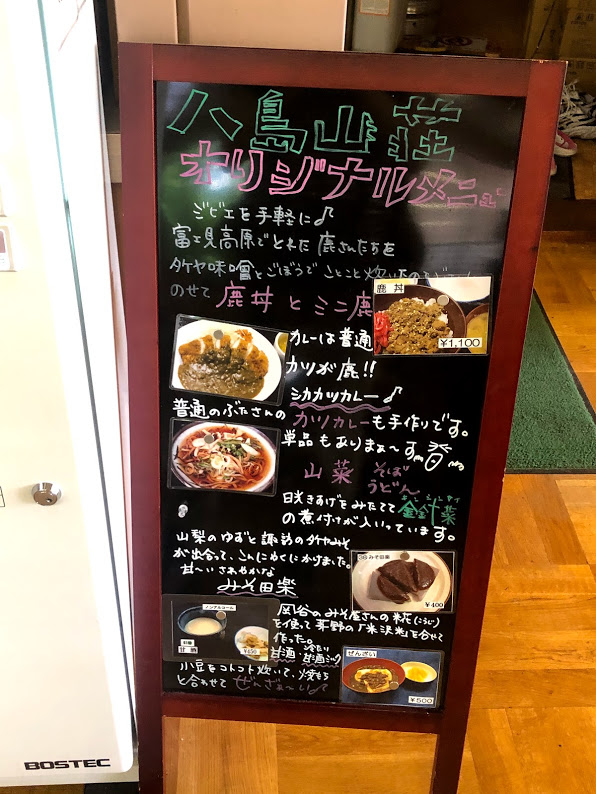 八島山荘
オリジナルメニュー
ジビエを手軽に♪
富士見高原でとれた 鹿さんたちを
タケヤ味噌とごぼうで ことこと
のせて 鹿丼 と ミニ鹿
鹿丼
¥1,100
カレーは普通
カツが鹿!!
シカカツカレー♪
普通のぶたさんの
カツカレーも手作りです。
単品もありまぁ〜す
山菜 そば
うどん
日光きすげをみたてて 金針菜
の煮付けが入っています。
山梨のゆずと諏訪のタケヤみそ
が出合って、こんにゃくにかけました。
甘〜いさわやかな
みそ田楽
みそ田楽
¥400
岡谷のみそ屋さんの糀(こうじ)
を使って茅野の「米沢米」を合せて
作った。
甘酒・冷たい甘酒ミルク
ノンアルコール
甘酒
小豆をコトコト炊いて、焼もち
と合わせて ぜんざぁ〜い♪
ぜんざい
¥500
BOSTEC